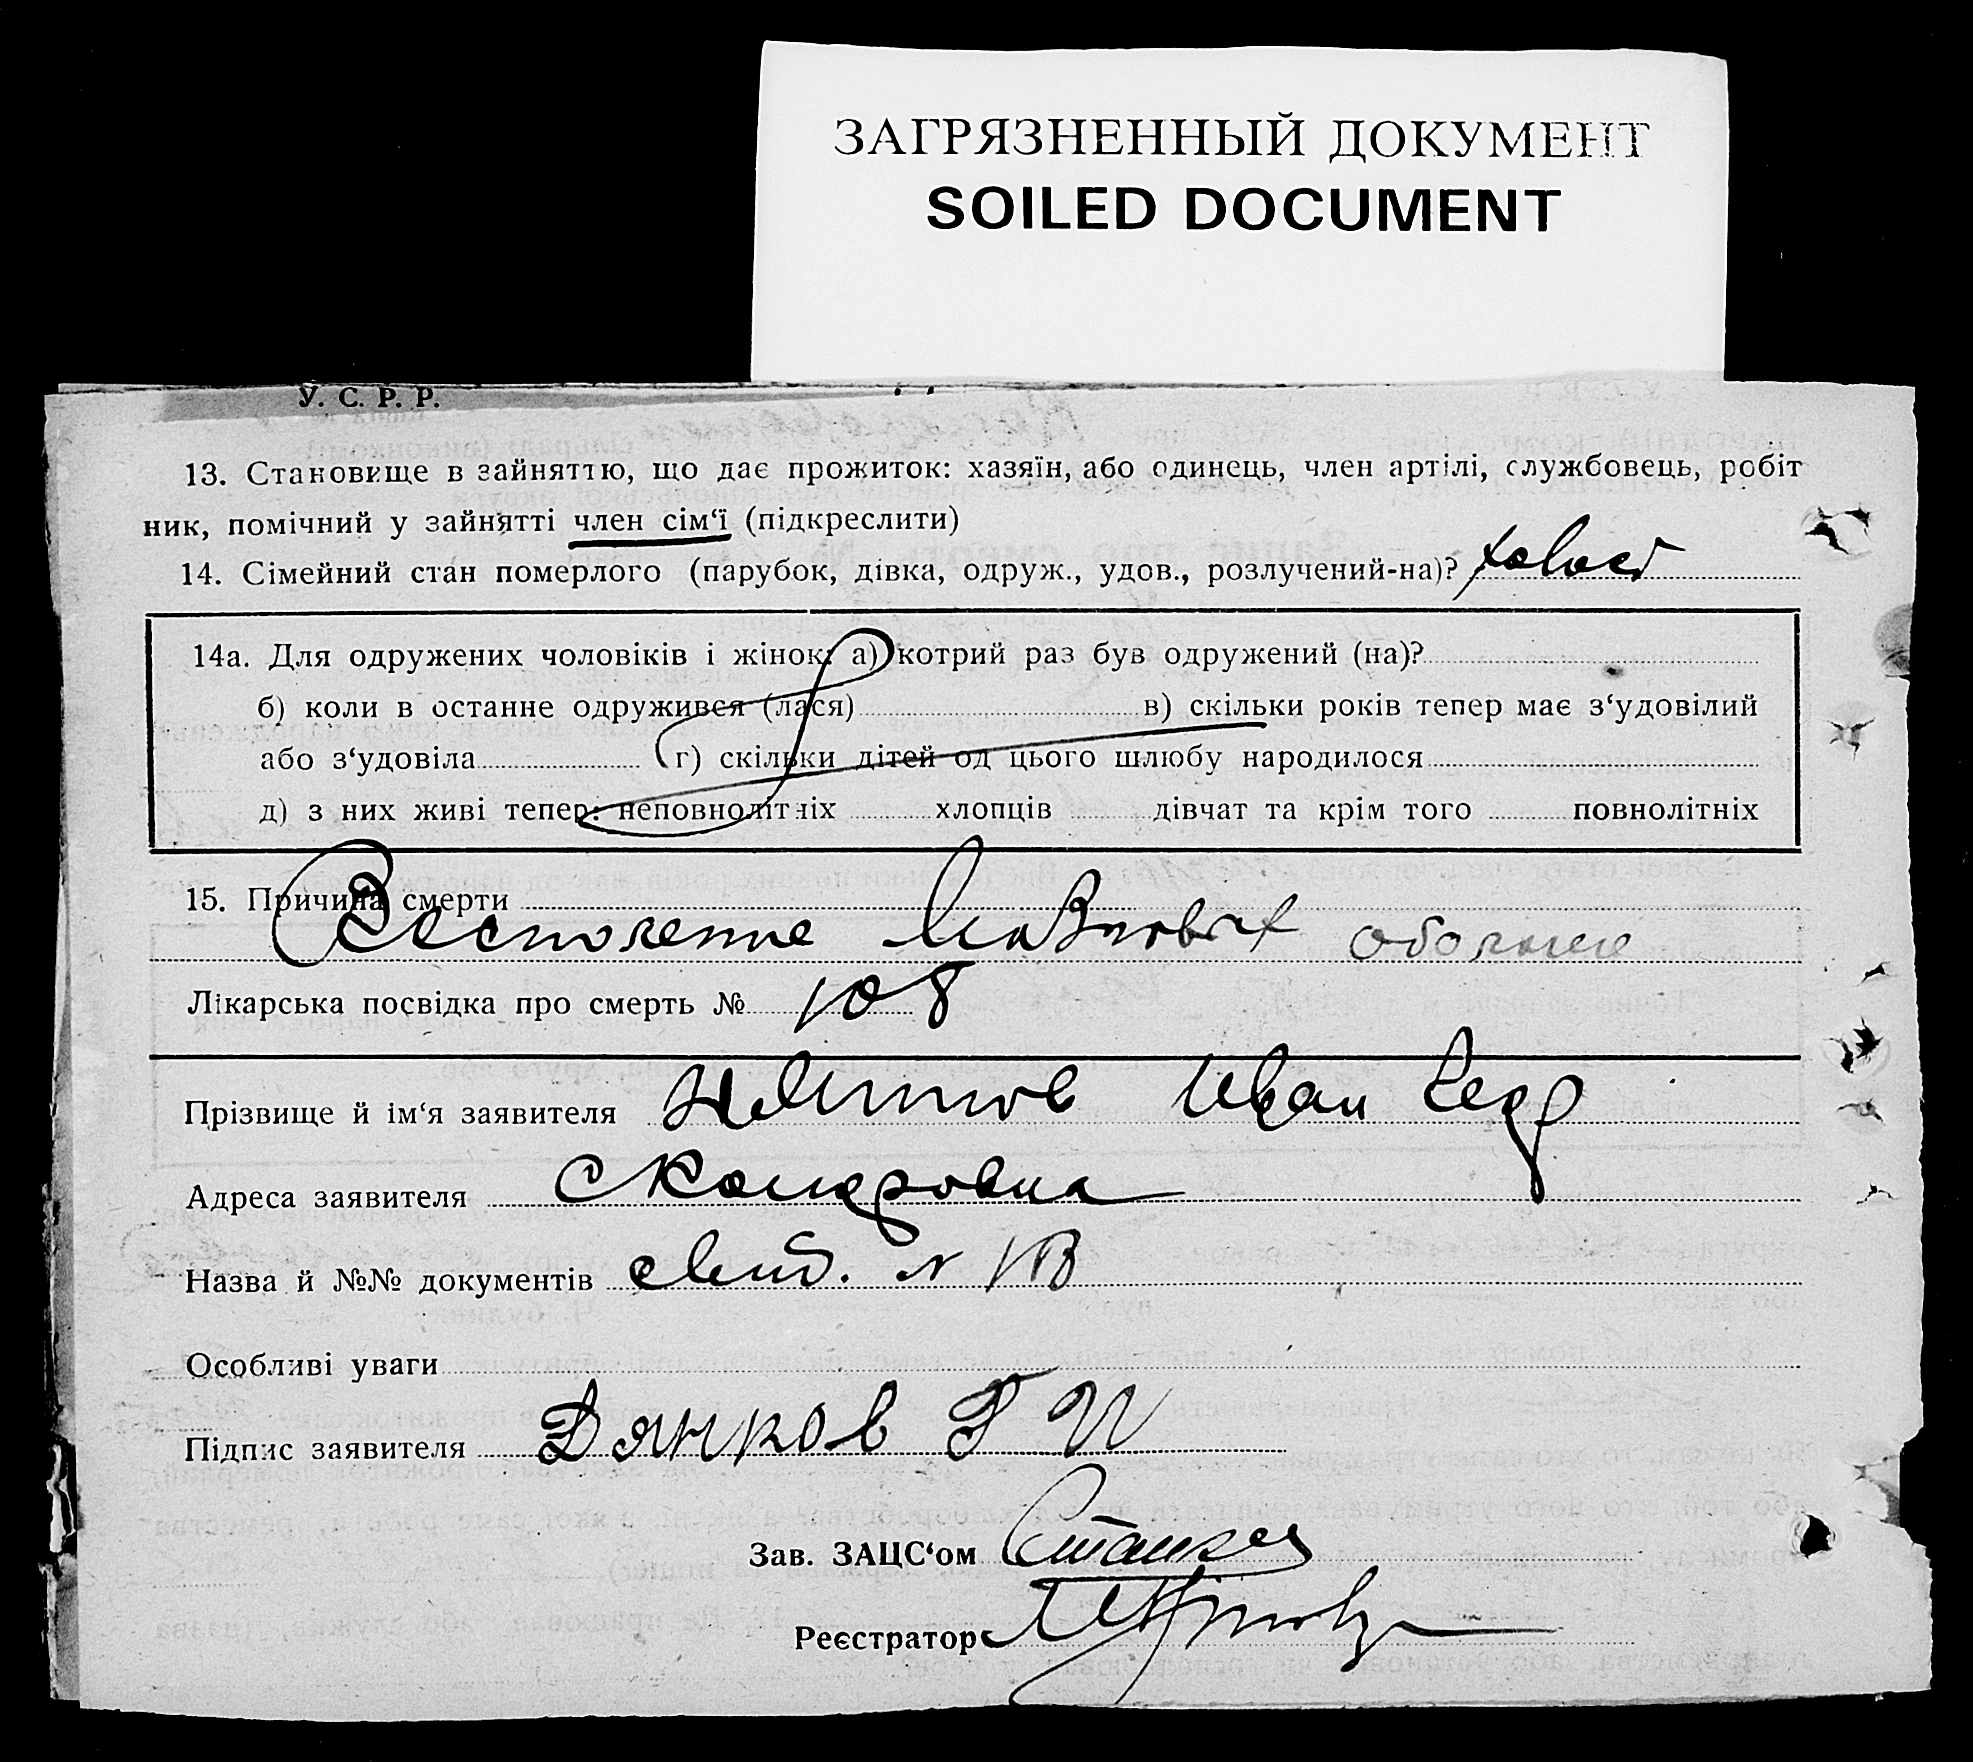 ЗАГРЯЗНЕННЫЙ ДОКУМЕНТ
SOILED DOCUMENT
У. С. Р. Р.
13. Становище в зайняттю, що дає прожиток: хазяїн, або одинець, член артілі, службовець, робіт
ник, помічний у зайнятті член сім‘ї (підкреслити)
14. Сімейний стан померлого (парубок, дівка, одруж., удов., розлучений-на)? холост
14а. Для одружених чоловіків і жінок: а) котрий раз був одружений (на)?
б) коли в останнє одружився (лася) в) скільки років тепер має з‘удовілий
або з‘удовіла г) скільки дітей од цього шлюбу народилося
д) з них живі тепер: неповнолітніх хлопців дівчат та крім того повнолітніх
15. Причина смерти
Восполение Мозговых оболочек
Лікарська посвідка про смерть № 108
Прізвище й ім‘я заявителя Иван
Адреса заявителя
Назва й №№ документів
Особливі уваги
Підпис заявителя Дянков Г И
Зав. ЗАЦС‘ом
Реєстратор